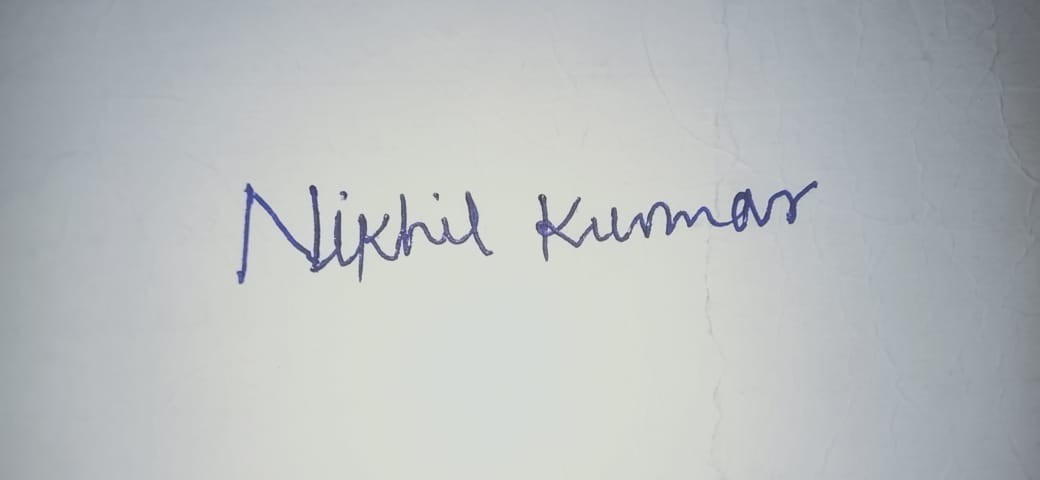 Nikhil Kumar